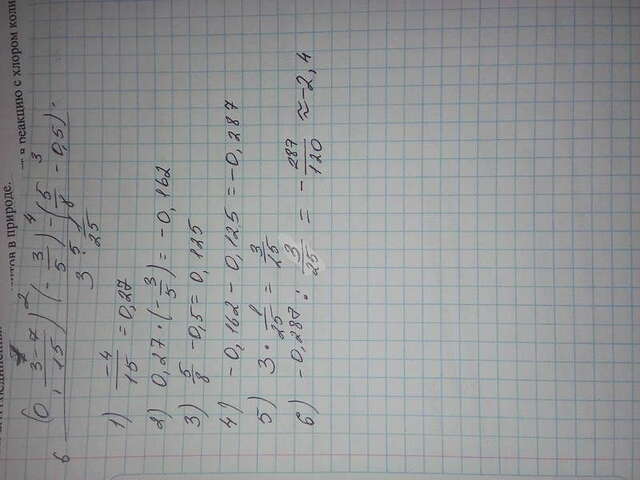 итов в природе.
в реакцию с хлором коли
(0, (3-7)/15)² (- 3/5) - (5/8 - 0,5) ·
3 · 1/25
1) -4/15 = 0,27
2) 0,27 · (- 3/5) = -0,162
3) 5/8 - 0,5 = 0,125
4) -0,162 - 0,125 = -0,287
5) 3 · 1/25 = 3/25
6) -0,287 : 3/25 = - 287/120 ≈ -2,4